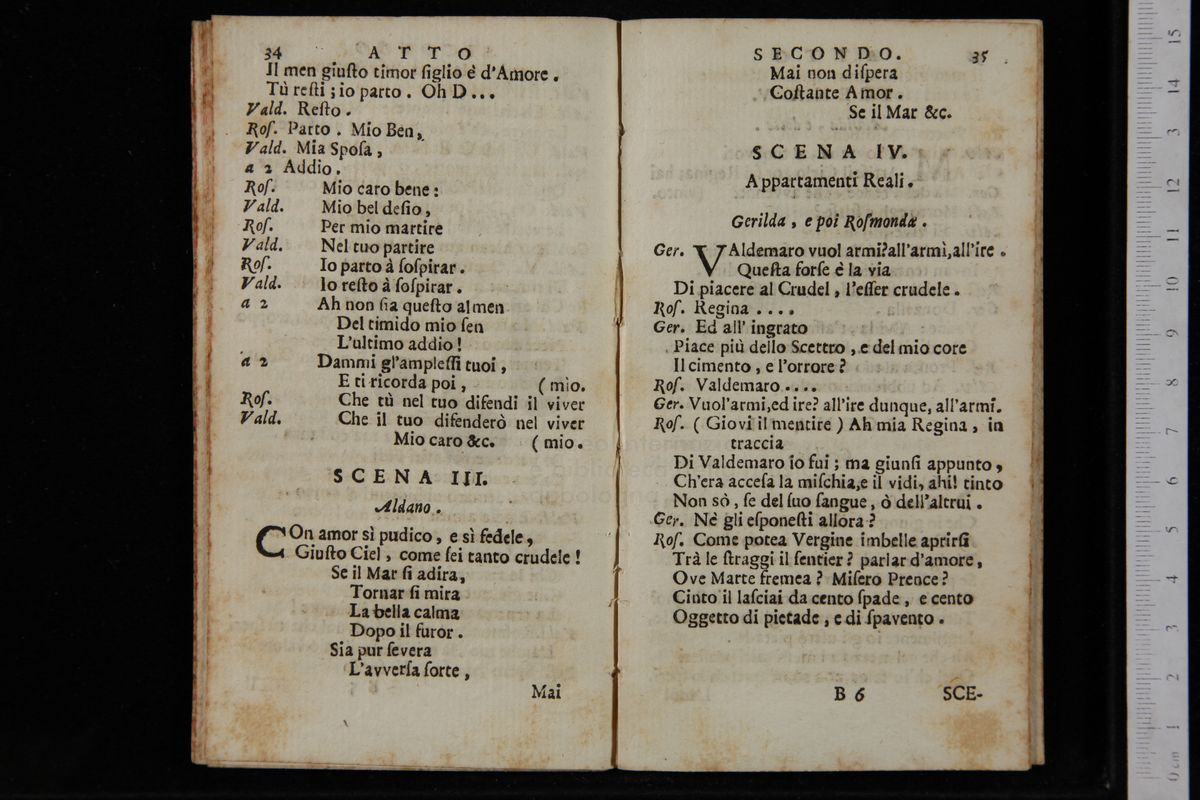 34 ATTO
Il men giuſto timor figlio è d'Amore.
Tù reſti; io parto. Oh D...
Vald. Reſto.
Roſ. Parto. Mio Ben,
Vald. Mia Spoſa,
a 2 Addio.
Roſ. Mio caro bene:
Vald. Mio bel deſio,
Roſ. Per mio martire
Vald. Nel tuo partire
Roſ. Io parto à ſoſpirar.
Vald. Io reſto à ſoſpirar.
a 2 Ah non ſia queſto almen
Del timido mio ſen
L'ultimo addio!
a 2 Dammi gl'ampleſſi tuoi,
E ti ricorda poi, (mio.
Roſ. Che tù nel tuo difendi il viver
Vald. Che il tuo difenderò nel viver
Mio caro &c. (mio.
SCENA III.
Aldano.
COn amor sì pudico, e sì fedele,
Giuſto Ciel, come ſei tanto crudele!
Se il Mar ſi adira,
Tornar ſi mira
La bella calma
Dopo il furor.
Sia pur ſevera
L'avverſa ſorte,
Mai
SECONDO. 35
Mai non diſpera
Coſtante Amor.
Se il Mar &c.
SCENA IV.
Appartamenti Reali.
Gerilda, e poi Roſmonda.
Ger. VAldemaro vuol armi? all'armi, all'ire.
Queſta forſe è la via
Di piacere al Crudel, l'eſſer crudele.
Roſ. Regina....
Ger. Ed all' ingrato
Piace più dello Scettro, e del mio core
Il cimento, e l'orrore?
Roſ. Valdemaro....
Ger. Vuol'armi, ed ire? all'ire dunque, all'armi.
Roſ. (Giovi il mentire) Ah mia Regina, in
traccia
Di Valdemaro io fui; ma giunſi appunto,
Ch'era acceſa la miſchia, e il vidi, ahi! tinto
Non sò, ſe del ſuo ſangue, ò dell'altrui.
Ger. Nè gli eſponeſti allora?
Roſ. Come potea Vergine imbelle aprirſi
Trà le ſtraggi il ſentier? parlar d'amore,
Ove Marte fremea? Miſero Prence?
Cinto il laſciai da cento ſpade, e cento
Oggetto di pietade, e di ſpavento.
B 6 SCE-